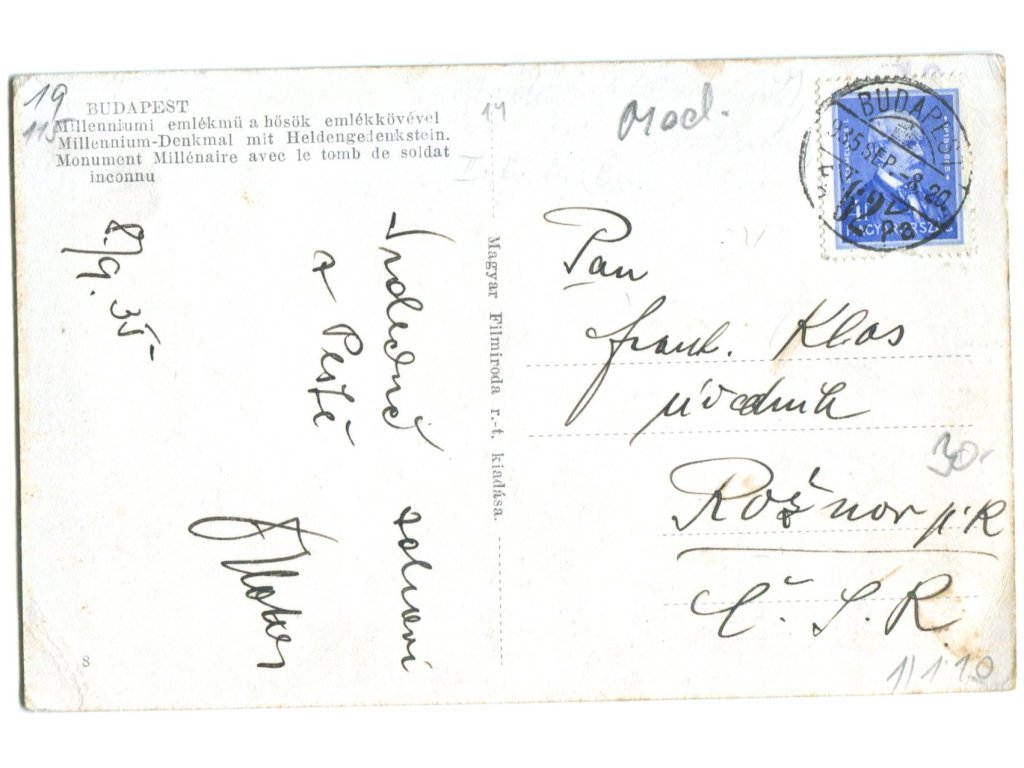 19
115
BUDAPEST
Millenniumi emlékmű a hősök emlékkövével
Millennium-Denkmal mit Heldengedenkstein.
Monument Millénaire avec le tomb de soldat
inconnu
14
Mod.
BUDAPEST
935 SEP. -8. 20
MAGYARORSZÁG
8/9. 35
Srdečné
z Pešti
Magyar Filmiroda r.-t. kiadása.
Pan
frant. Klos
úředník
30.-
Rožnov p. R
Č. S. R.
8
1/1 10